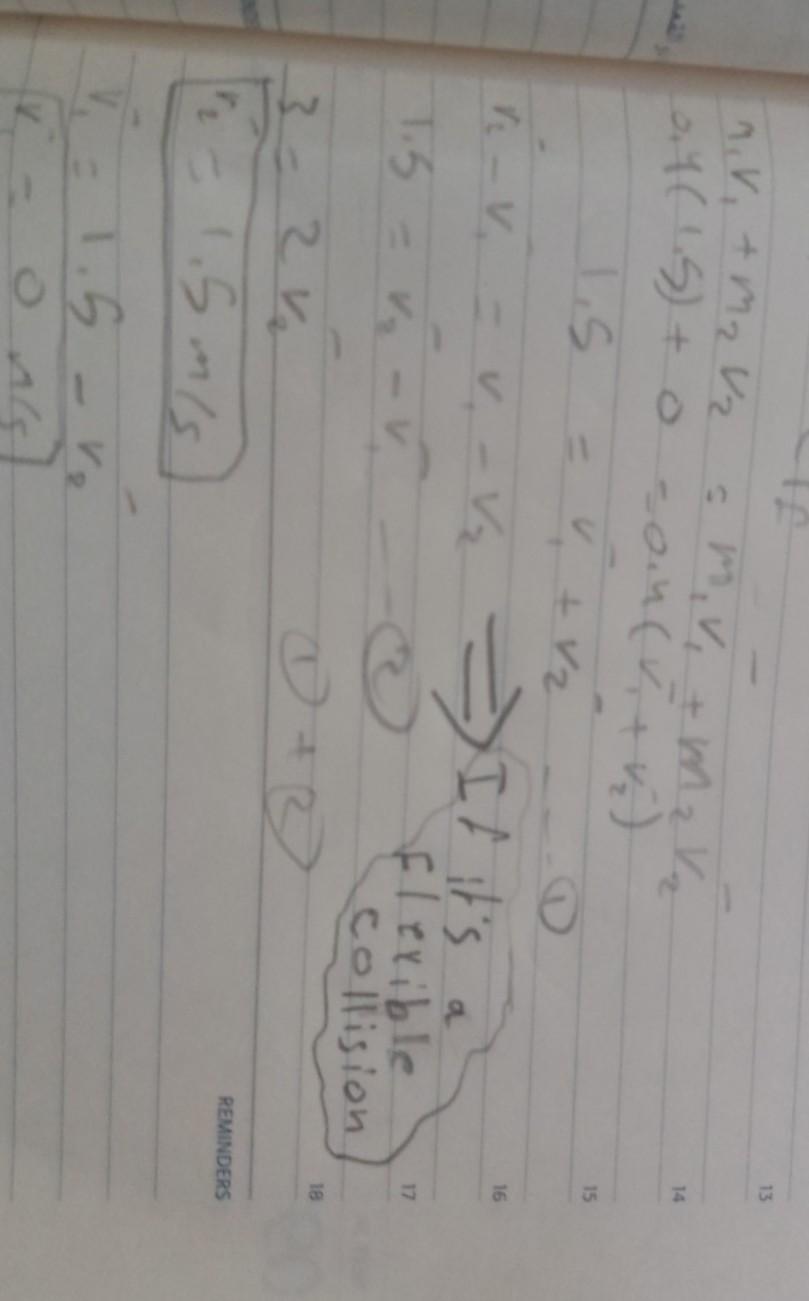 m₁v₁ + m₂v₂ = m₁v₁⁻ + m₂v₂⁻
0.4(1.5) + 0 = 0.4(v₁⁻ + v₂⁻)
1.5 = v₁⁻ + v₂⁻ --- ①
v₂⁻ - v₁⁻ = v₁ - v₂ ⇒ If it's a
Flexible
collision
1.5 = v₂⁻ - v₁⁻ --- ②
3 = 2v₂⁻ ① + ②
v₂⁻ = 1.5 m/s
v₁⁻ = 1.5 - v₂⁻
v⁻ = 0 m/s
13
14
15
16
17
18
REMINDERS